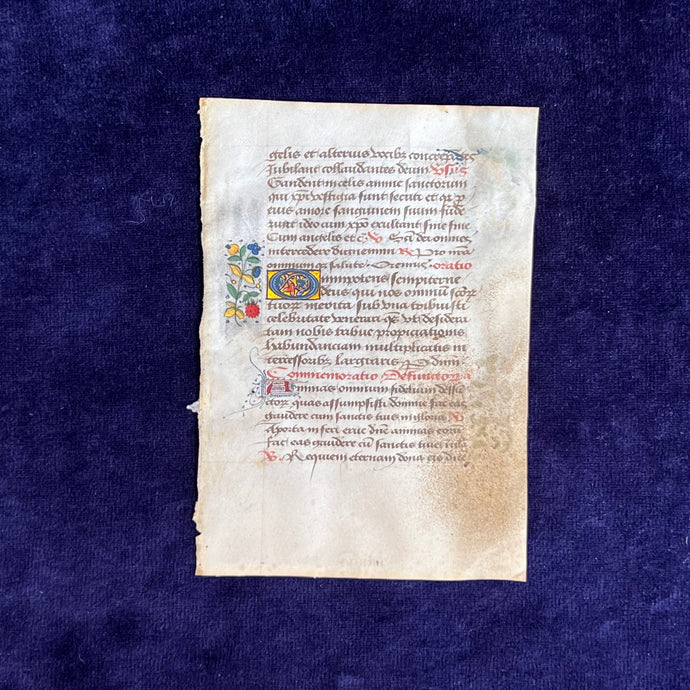 gelis et alterius vocibz concrepātes
Jubilant collaudantes deum Vsus
Gaudent in celis anime sanctorum
qui xpi vestigia sunt secuti et qz p
eius amore sanguinem suum fude
runt ideo cum xpo exultant sine fine
Cum angelis et c V Sā dei omnes
intercedere dignemini R Pro nrā
omnium qz salute Oremus oratio
Omnipotens sempiterne
deus qui nos omniū scōr
tuorz merita sub vna tribuisti
celebritate venerari qs vt desidera
tam nobis tribue propiciationis
habundanciam multiplicatis in
tercessoribz largiaris P dnm
Commemoratio Defunctorz a
Animas omnium fidelium defūc
torz quas assumpsisti domine fac eas
gaudere cum sanctis tuis in gloria V
Aporta inferi erue dne animas eorū
fac eas gaudere cū sanctis tuis
V Requiem eternam dona eis dne